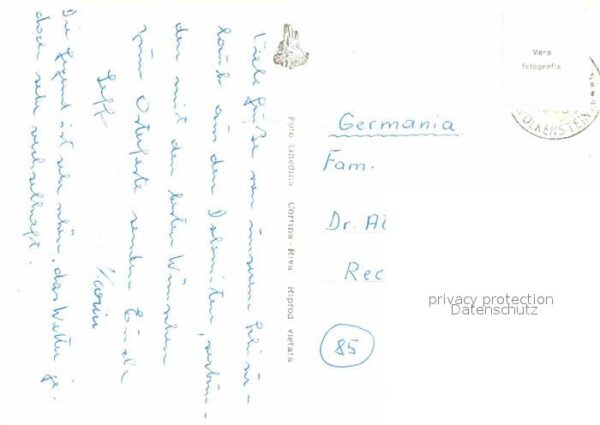 Viele Grüße von unserem Skiur-
laub aus den Dolomiten, verbun-
den mit den besten Wünschen
zum Osterfeste senden Euch
Karin
Die Gegend ist sehr schön, das Wetter je-
doch sehr wechselhaft.
Foto Ghedina Cortina - Riva Riprod. vietata
Vera
fotografia
WOLKENSTEIN
Germania
Fam.
Dr. Al
Rec
85
privacy protection
Datenschutz